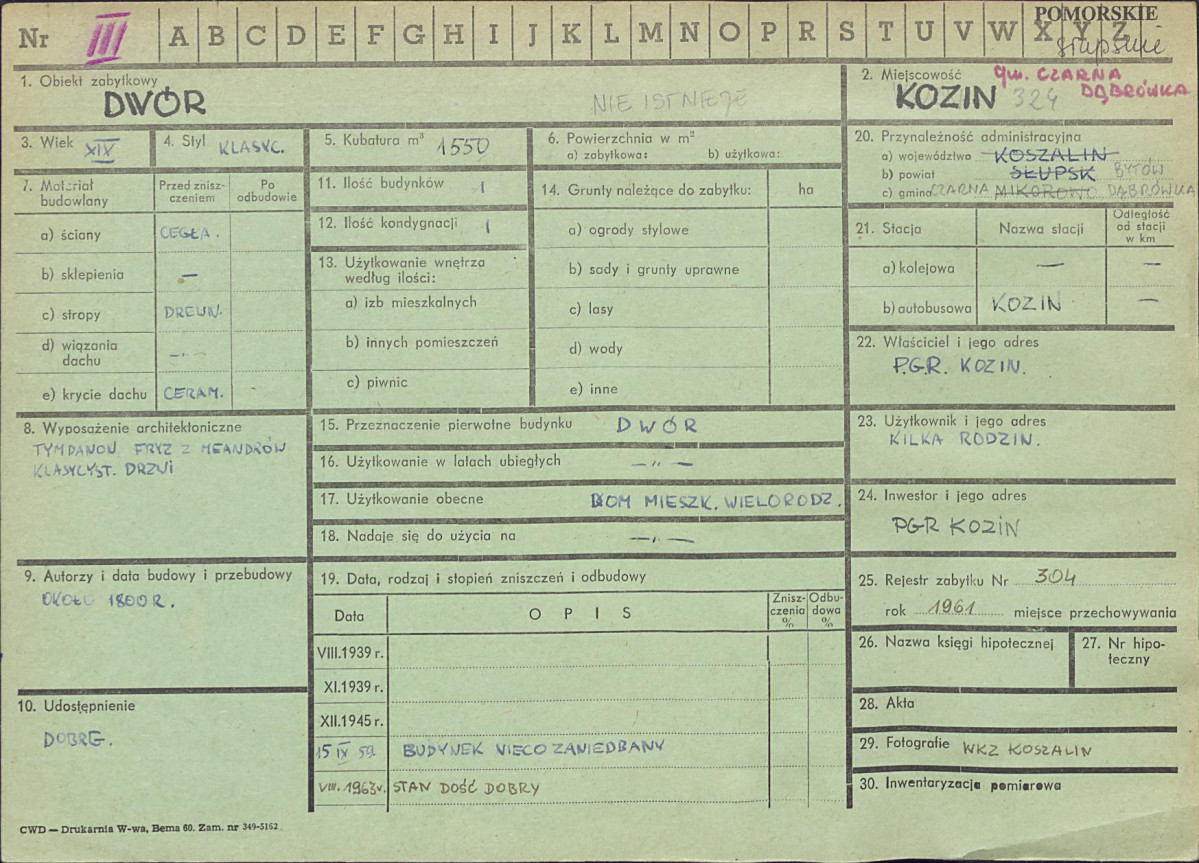 Nr III A B C D E F G H I J K L M N O P R S T U V W X Y Z
POMORSKIE
słupskie
1. Obiekt zabytkowy
DWÓR
NIE ISTNIEJE
2. Miejscowość
gm. CZARNA
DĄBRÓWKA
KOZIN 324
3. Wiek XIX
4. Styl KLASYC.
5. Kubatura m³ 1550
6. Powierzchnia w m²
a) zabytkowa: b) użytkowa:
7. Materiał budowlany
Przed zniszczeniem
Po odbudowie
a) ściany CEGŁA.
b) sklepienia —
c) stropy DREWN.
d) wiązania dachu —„—
e) krycie dachu CERAM. -
8. Wyposażenie architektoniczne
TYMPANON, FRYZ Z MEANDRÓW
KLASYCYST. DRZWI
9. Autorzy i data budowy i przebudowy
OKOŁO 1800 R.
10. Udostępnienie
DOBRE.
11. Ilość budynków 1
12. Ilość kondygnacji 1
13. Użytkowanie wnętrza według ilości:
a) izb mieszkalnych
b) innych pomieszczeń
c) piwnic
14. Grunty należące do zabytku: ha
a) ogrody stylowe
b) sady i grunty uprawne
c) lasy
d) wody
e) inne
15. Przeznaczenie pierwotne budynku DWÓR
16. Użytkowanie w latach ubiegłych —„—
17. Użytkowanie obecne DOM MIESZK. WIELORODZ.
18. Nadaje się do użycia na —„—
19. Data, rodzaj i stopień zniszczeń i odbudowy
Data OPIS Zniszczenia % Odbudowa %
VIII.1939 r.
XI.1939 r.
XII.1945 r.
15 IX 59. BUDYNEK NIECO ZANIEDBANY
VIII. 1963 r. STAN DOŚĆ DOBRY
20. Przynależność administracyjna
a) województwo KOSZALIN
b) powiat SŁUPSK BYTÓW
c) gmina CZARNA MIKOROWO DĄBRÓWKA
21. Stacja Nazwa stacji Odległość od stacji w km
a) kolejowa — —
b) autobusowa KOZIN —
22. Właściciel i jego adres
P.G.R. KOZIN.
23. Użytkownik i jego adres
KILKA RODZIN.
24. Inwestor i jego adres
PGR KOZIN
25. Rejestr zabytku Nr 304
rok 1961 miejsce przechowywania
26. Nazwa księgi hipotecznej
27. Nr hipoteczny
28. Akta
29. Fotografie WKZ KOSZALIN
30. Inwentaryzacja pomiarowa
CWD — Drukarnia W-wa, Bema 60. Zam. nr 349-5162